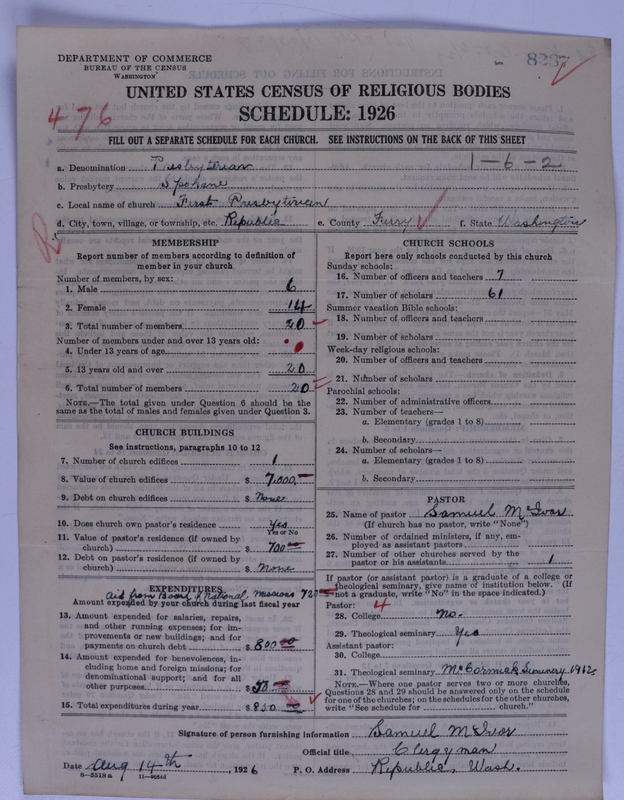 DEPARTMENT OF COMMERCE
BUREAU OF THE CENSUS
WASHINGTON
8237
UNITED STATES CENSUS OF RELIGIOUS BODIES
SCHEDULE: 1926
476
FILL OUT A SEPARATE SCHEDULE FOR EACH CHURCH. SEE INSTRUCTIONS ON THE BACK OF THIS SHEET
1-6-2
a. Denomination Presbyterian
b. Presbytery Spokane
c. Local name of church First Presbyterian
d. City, town, village, or township, etc. Republic e. County Ferry f. State Washington
MEMBERSHIP
Report number of members according to definition of
member in your church
Number of members, by sex:
1. Male 6
2. Female 14
3. Total number of members 20
Number of members under and over 13 years old:
4. Under 13 years of age 0
5. 13 years old and over 20
6. Total number of members 20
NOTE.—The total given under Question 6 should be the
same as the total of males and females given under Question 3.
CHURCH BUILDINGS
See instructions, paragraphs 10 to 12
7. Number of church edifices 1
8. Value of church edifices $ 7,000.
9. Debt on church edifices $ None
10. Does church own pastor's residence Yes
Yes or No
11. Value of pastor's residence (if owned by
church) $ 700
12. Debt on pastor's residence (if owned by
church) $ None
EXPENDITURES
aid from Board of National Missions 720
Amount expended by your church during last fiscal year
13. Amount expended for salaries, repairs,
and other running expenses; for im-
provements or new buildings; and for
payments on church debt $ 800 00
14. Amount expended for benevolences, in-
cluding home and foreign missions; for
denominational support; and for all
other purposes $ 50
15. Total expenditures during year $ 850
CHURCH SCHOOLS
Report here only schools conducted by this church
Sunday schools:
16. Number of officers and teachers 7
17. Number of scholars 61
Summer vacation Bible schools:
18. Number of officers and teachers
19. Number of scholars
Week-day religious schools:
20. Number of officers and teachers
21. Number of scholars
Parochial schools:
22. Number of administrative officers
23. Number of teachers—
a. Elementary (grades 1 to 8)
b. Secondary
24. Number of scholars—
a. Elementary (grades 1 to 8)
b. Secondary
PASTOR
25. Name of pastor Samuel McIvor
(If church has no pastor, write "None")
26. Number of ordained ministers, if any, em-
ployed as assistant pastors
27. Number of other churches served by the
pastor or his assistants 1
If pastor (or assistant pastor) is a graduate of a college or
theological seminary, give name of institution below. (If
not a graduate, write "No" in the space indicated.)
Pastor: 4
28. College no.
29. Theological seminary Yes
Assistant pastor:
30. College
31. Theological seminary McCormick Seminary 1912
NOTE.—Where one pastor serves two or more churches,
Questions 28 and 29 should be answered only on the schedule
for one of the churches; on the schedules for the other churches,
write "See schedule for church."
Signature of person furnishing information Samuel McIvor
Official title Clergyman
Date Aug 14th, 1926 P. O. Address Republic, Wash.
8-5518a